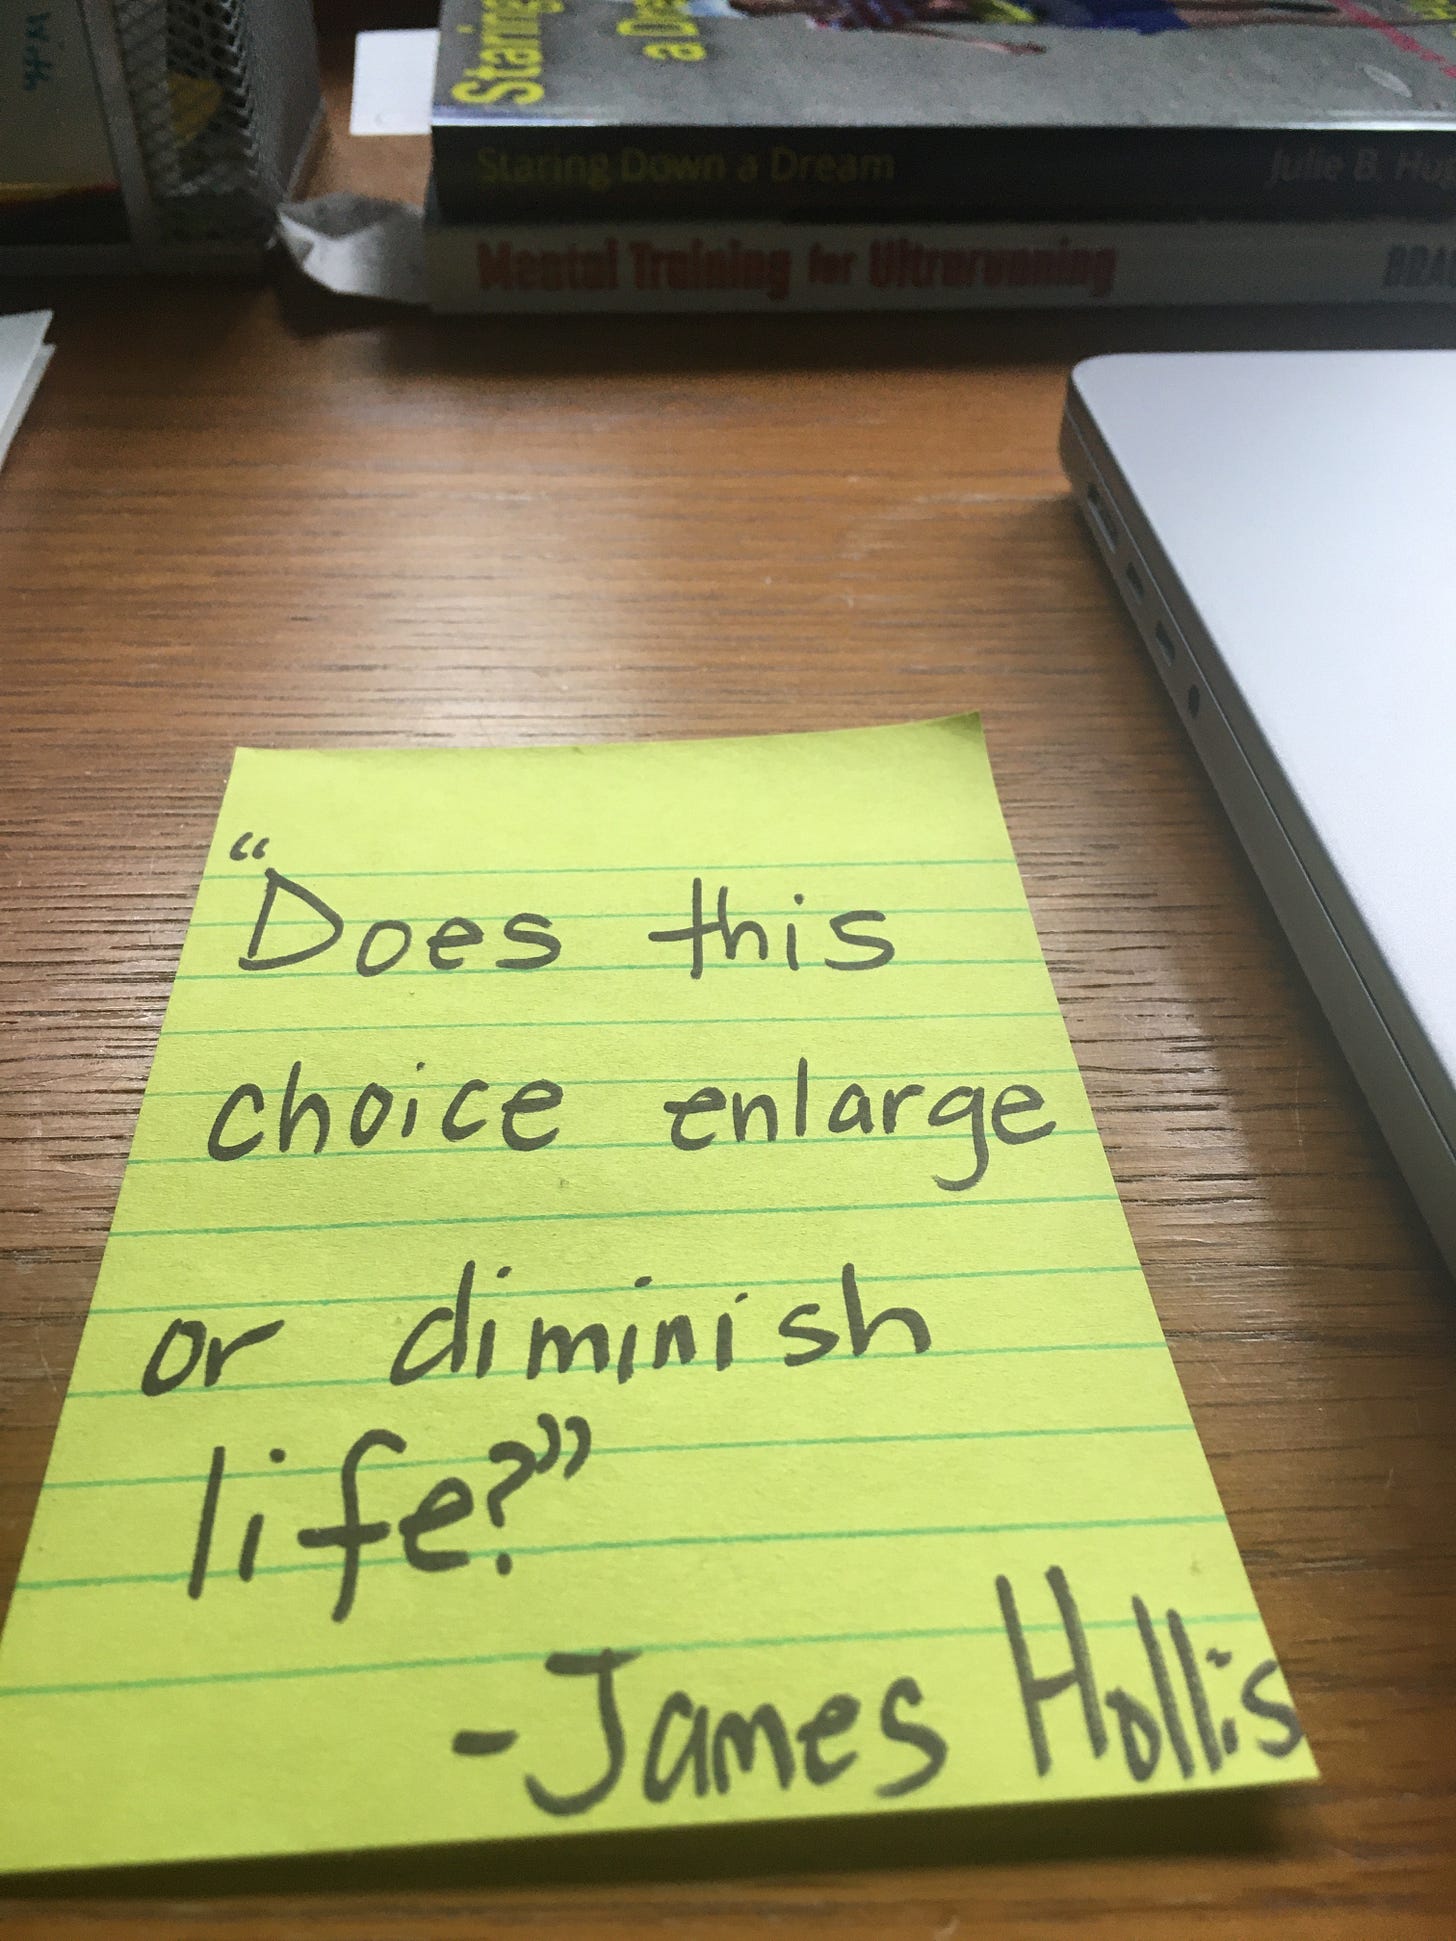 Staring
a D
Staring Down a Dream Julie B.
Mental Training for Ultrarunning
"Does this
choice enlarge
or diminish
life?"
-James Hollis